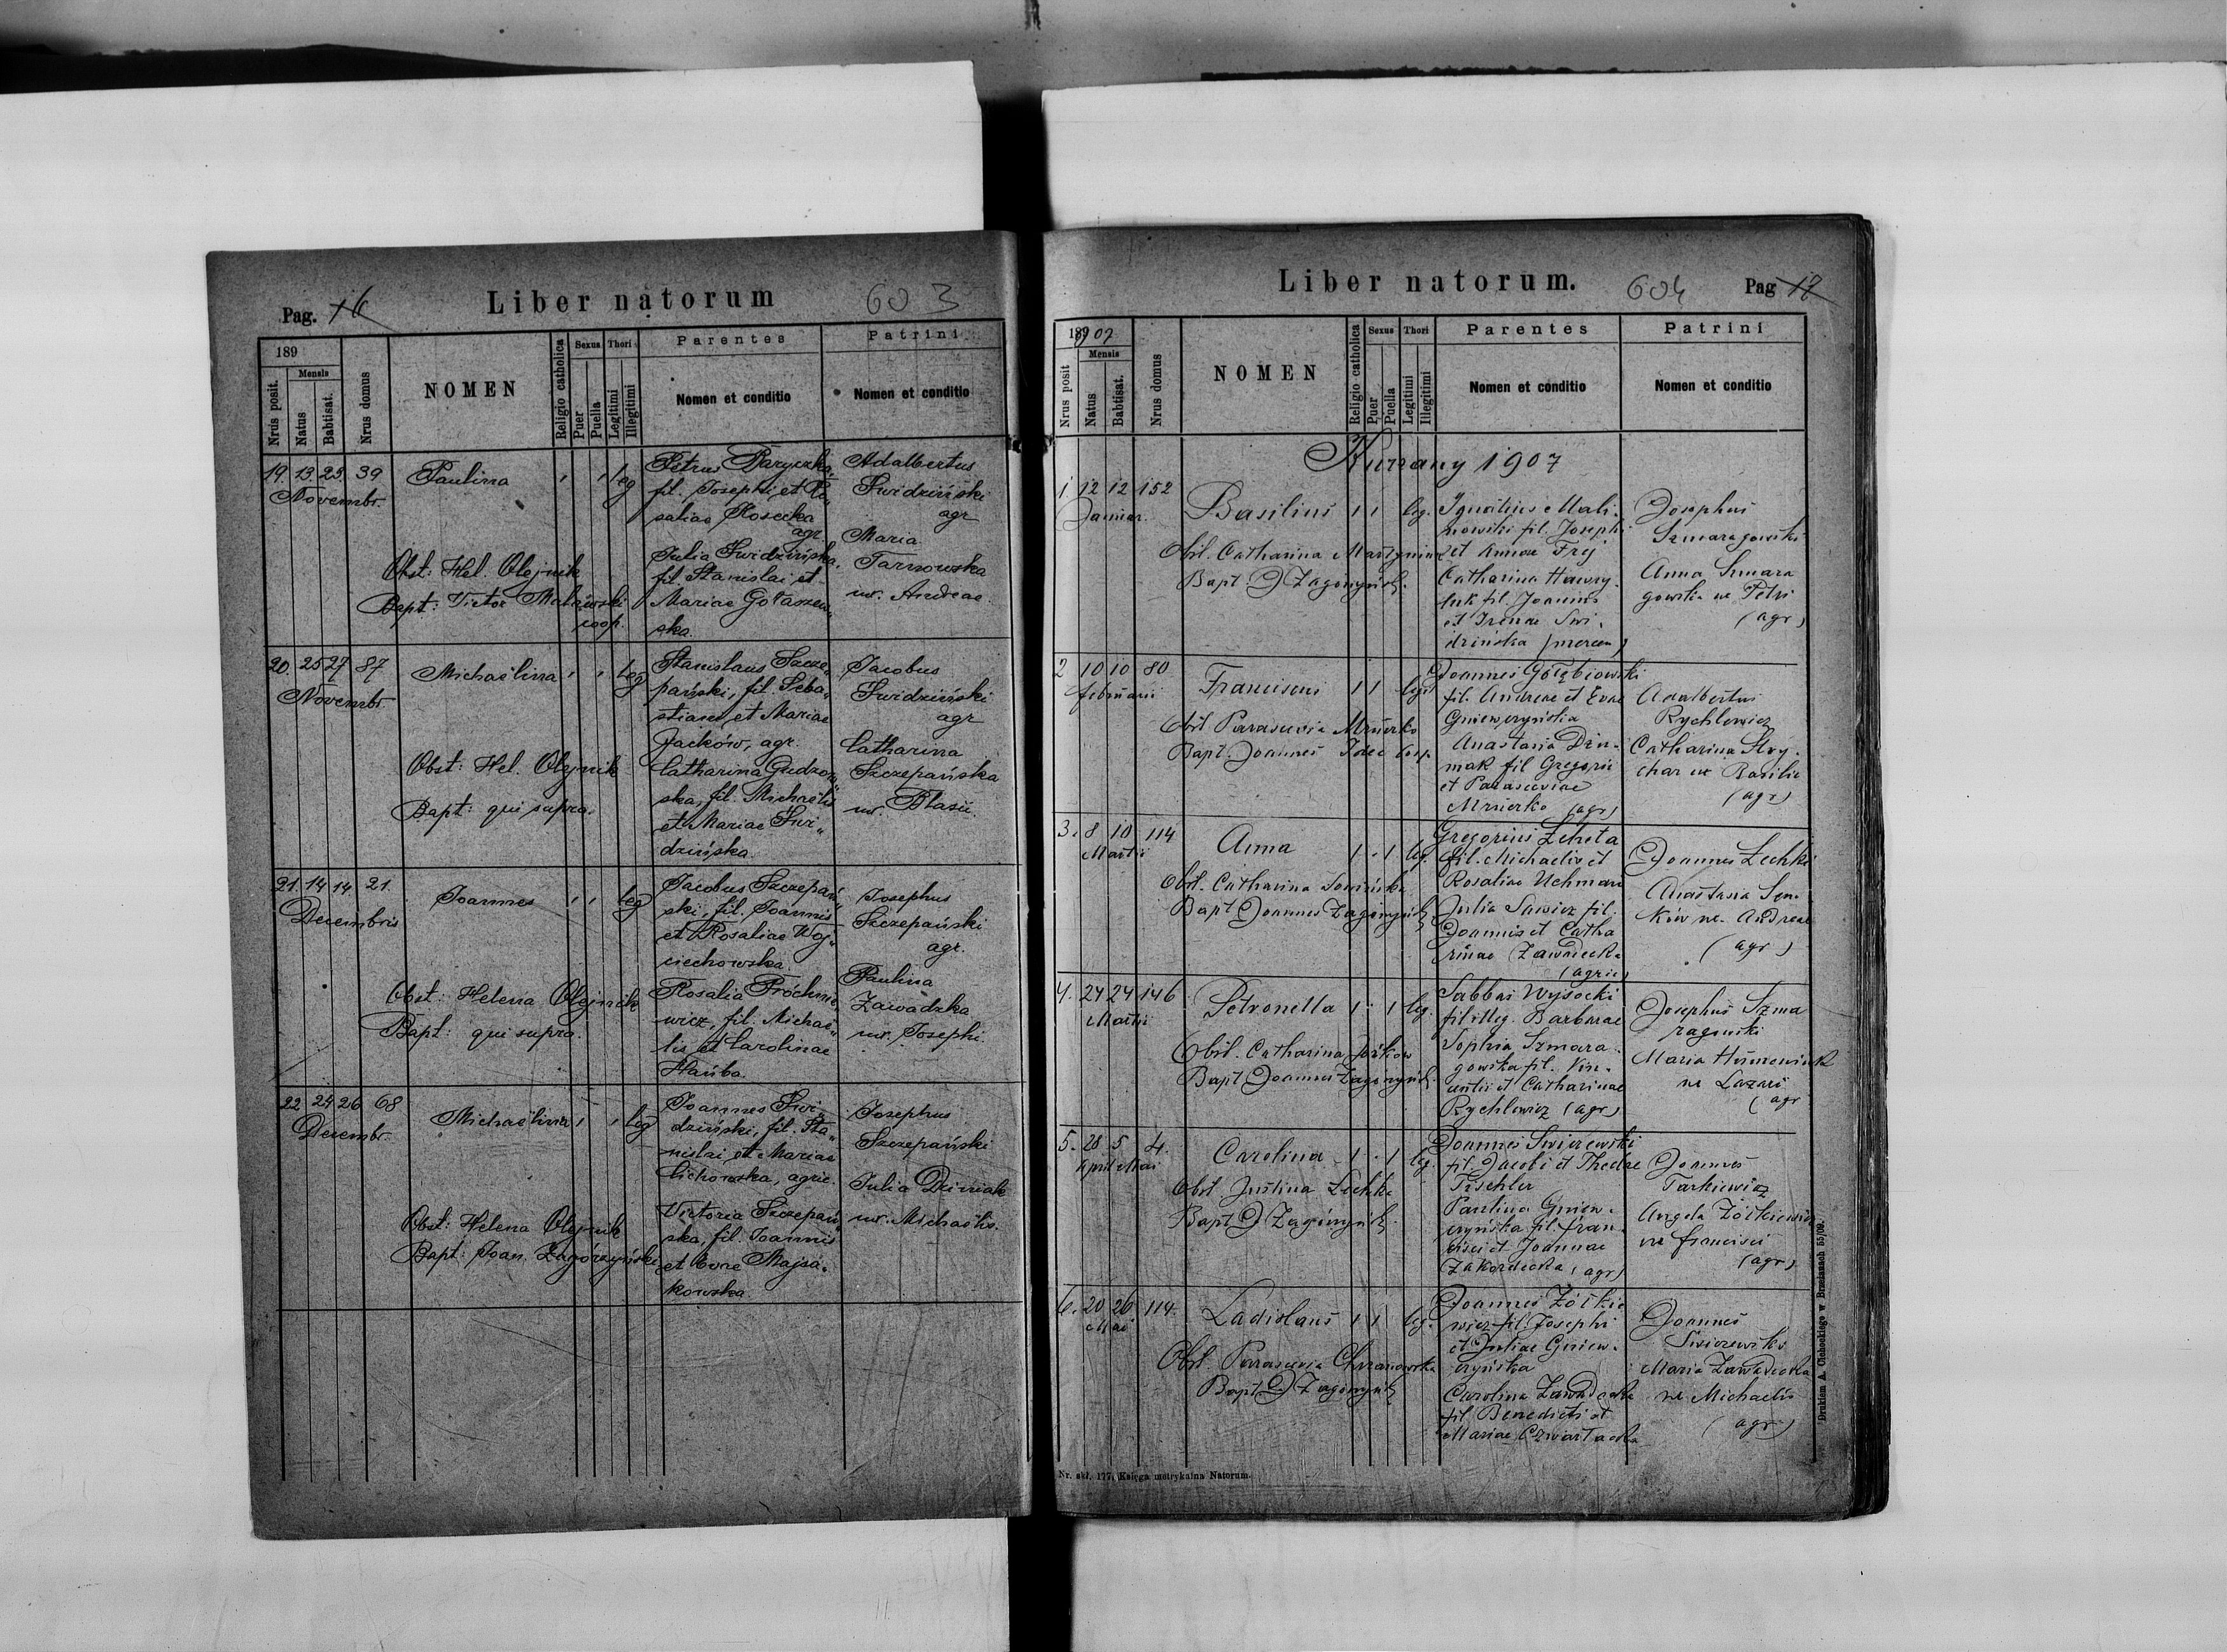 Pag. 16
Liber natorum
603
189
Nrus posit.
Mensis
Natus
Babtisat.
Nrus domus
NOMEN
Religio catholica
Sexus
Puer
Puella
Thori
Legitimi
Illegitimi
Parentes
Nomen et conditio
Patrini
Nomen et conditio
19. 13. 23. 39
Novembr.
Paulina
leg
Obst: Hel. Olejnik
Bapt: Victor
coop.
Petrus
fil. Josephi, et Ro„
saliae Kosecka
agr.
Julia Świdzińska,
fil. Stanislai, et
Mariae Gołaszew„
ska.
Adalbertus
Świdziński
agr
Maria
Tarnowska
ux. Andreae.
20. 25 27 87
Novembr.
Michaëlina
leg
Obst: Hel. Olejnik
Bapt: qui supra.
Stanislaus Szcze„
pański, fil. Seba„
stiani, et Mariae
Jacków, agr.
Catharina Gudzow„
ska, fil. Michaëlis
et Mariae Świ„
dzińska.
Jacobus
Świdziński
agr
Catharina
Szczepańska
ux. Blasii.
21. 14 14 21.
Decembris
Joannes
leg
Obst: Helena Olejnik
Bapt: qui supra.
Jacobus Szczepań„
ski, fil. Joannis
et Rosaliae Woj„
ciechowska.
Rosalia Próchnie„
wicz, fil. Michaë„
lis et Carolinae
Hańba.
Josephus
Szczepański
agr.
Paulina
Zawadzka
ux. Josephi.
22 24 26 68
Decembr.
Michaëlina
leg
Obst: Helena Olejnik
Bapt: Joan. Zagórzyński
Joannes Świ„
dziński, fil. Sta„
nislai et Mariae
Cichowska, agric.
Victoria Szczepań„
ska, fil. Joannis
et Evae Majsa„
kowska
Josephus
Szczepański
Julia Dziniak
ux. Michaëlis.
Liber natorum.
604
Pag 17
1907
Nrus posit
Mensis
Natus
Babtisat.
Nrus domus
NOMEN
Religio catholica
Sexus
Puer
Puella
Thori
Legitimi
Illegitimi
Parentes
Nomen et conditio
Patrini
Nomen et conditio
Kurzany 1907
1. 12 12 152
Januar.
Basilius
leg.
Obst. Catharina
Bapt. J Zagórzyński.
Ignatius Mali-
nowski fil. Josephi
et Annae Frej
Catharina Hawry-
luk fil. Joannis
et Irenae Świ-
drińska
Josephus
Szmaragowski
Anna Szmara
gowska ux Petri
(agr)
2 10 10 80
februarii
Franciscus
legit
Obst Parascevia Mrurko
Bapt. Joannes Coop.
Joannes Gołębiowski
fil. Andreae et Evae
Gniewczyńska
Anastasia
mak fil Gregorii
et Parasceviae
(agr)
Adalbertus
Rychlewicz
Catharina
char ux Basilii
(agr)
3. 8 10 114
Martii
Anna
leg.
Obst. Catharina
Bapt Joannes Zagórzyński
Gregorius
fil. Michaelis et
Rosaliae Uchman
Julia Sawicz fil.
Joannis et Catha
rinae Zawadecka
(agric)
Joannes Lechki
Anastasia Sen-
ków ux. Andreae
(agr)
4. 24 24 146
Martii
Petronella
leg.
Obst. Catharina
Bapt Joannes Zagórzyński.
Sabbas Wysocki
fil illeg. Barbarae
Sophia Szmara-
gowska fil. Vin-
centii et Catharinae
Rychlewicz (agr)
Josephus Szma
ragowski
Maria
ux Lazari
(agr
5. 28 5 4.
April Mai
Carolina
leg.
Obst Justina Lechka
Bapt J Zagórzyński.
Joannes Świczewski
fil. Jacobi et
Fischler
Paulina Gniew-
czyńska fil. fran-
cisci et Joannae
Zakordecka, agr)
Joannes
Tarkiewicz
Angela Żółkiewicz
ux francisci
(agr)
6. 20 26 114.
Mai
Ladislaus
leg.
Obst. Parascevia Chrzanowska
Bapt J Zagórzyński
Joannes Żółkie
wicz fil. Josephi
et Juliae Gniew-
czyńska
Carolina Zawadecka
fil Benedicti et
Mariae Czwartacka
Joannes
Świczewski
Maria Zawadecka
ux Michaelis
(agr)
Nr. skł. 177. Księga metrykalna Natorum.
Drukiem A. Cichockiego w Brzeżanach 55/02.